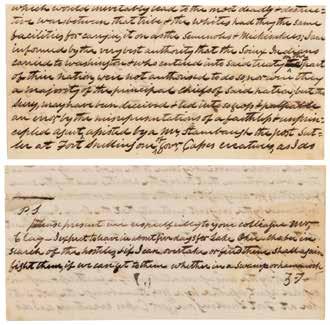 which would inevitably lead to the most deadly & destruc-
tive war between that tribe & the whites had they the same
facilities for carrying it on as the Seminoles & Mickasukies; I am
informed by the very best authority that the Sioux Indians
carried to Washington & who entered into said treaty on the part
of their nation were not authorised to do so nor were they
a majority of the principal chiefs of said nation, but the
Secy. may have been deceived & led into so gross & palpable
an error by the misrepresentations of a faithless & unprin-
cipled agent, assisted by a Mr Stambaugh the post Sut-
ler at Fort Snelling one of Gov Capes creatures, as I as
P.S.
Please present me respectfully to your colleague Mr
Clay – I expect to leave in about five days for Lake Okee-chobee in
search of the hostiles, & if I can overtake or find them shall again
fight them, if we can get to them whether in a swamp or hammock
37–